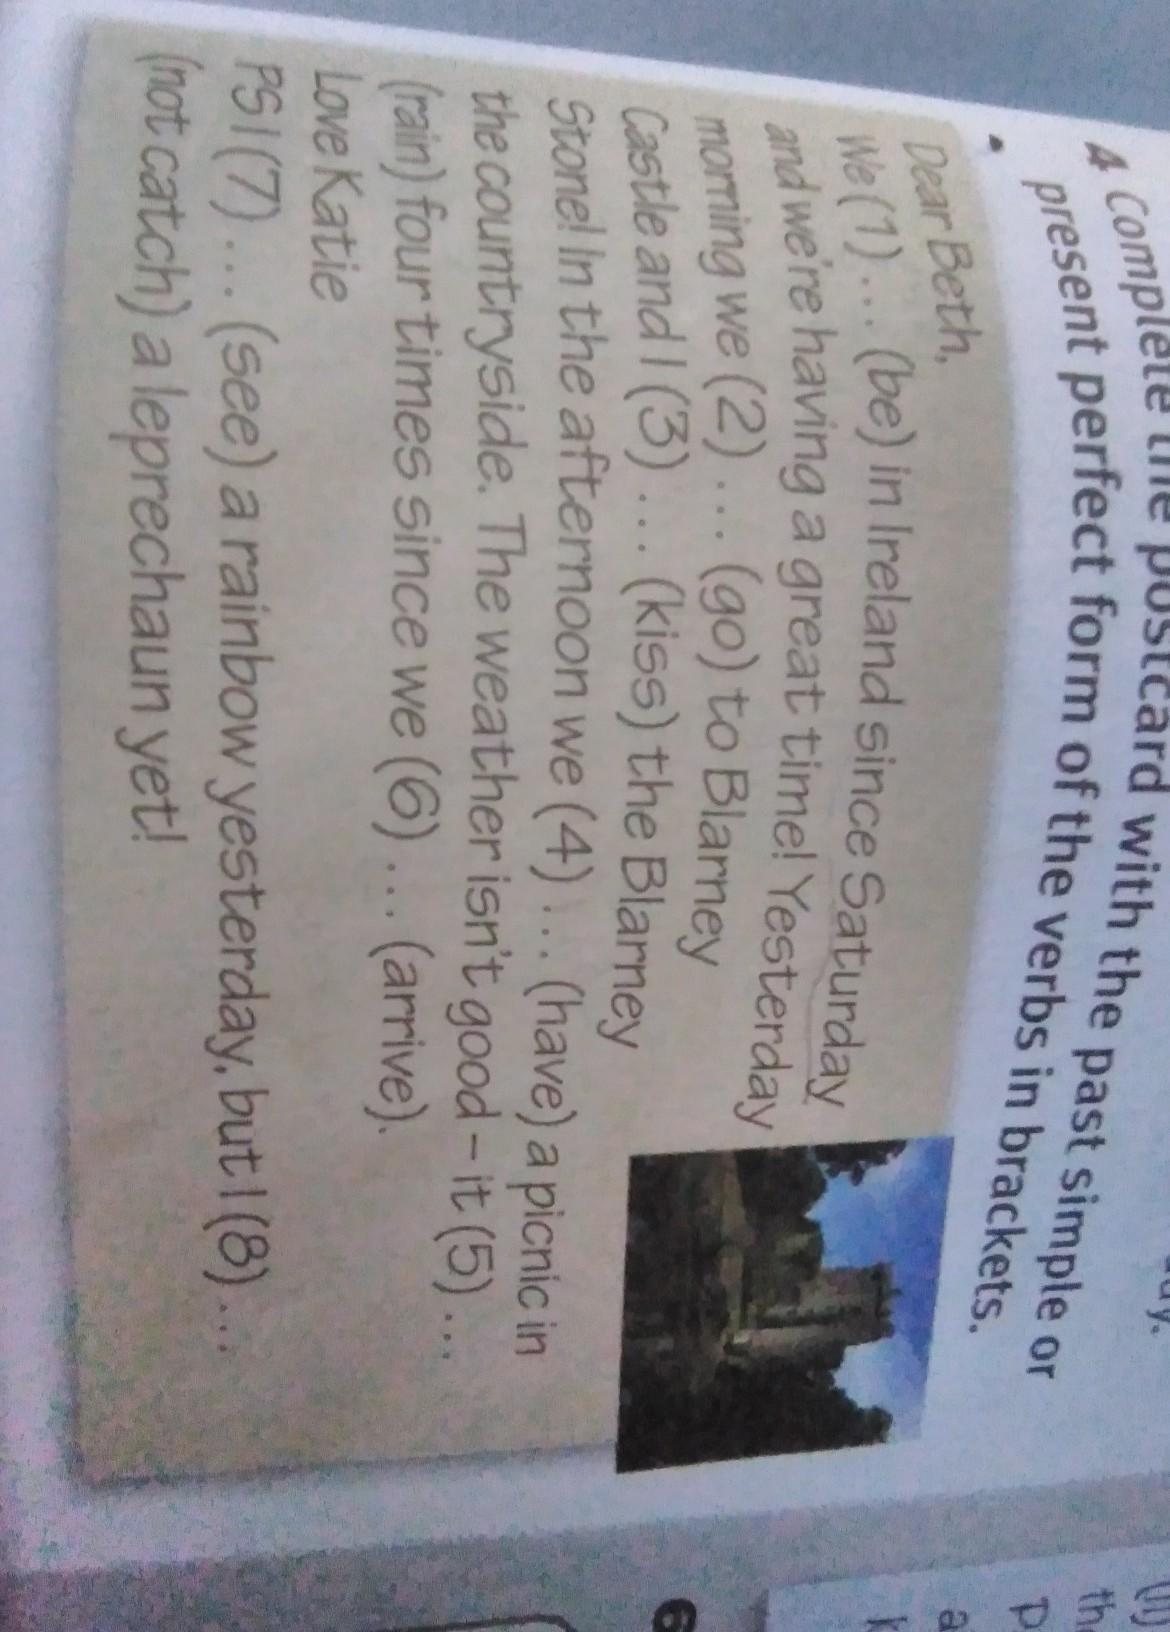 4 Complete the postcard with the past simple or
present perfect form of the verbs in brackets.
Dear Beth,
We (1) ... (be) in Ireland since Saturday
and we're having a great time! Yesterday
morning we (2) ... (go) to Blarney
Castle and I (3) ... (kiss) the Blarney
Stone! In the afternoon we (4) ... (have) a picnic in
the countryside. The weather isn't good – it (5) ...
(rain) four times since we (6) ... (arrive).
Love Katie
PS I (7) ... (see) a rainbow yesterday, but I (8) ...
(not catch) a leprechaun yet!
6